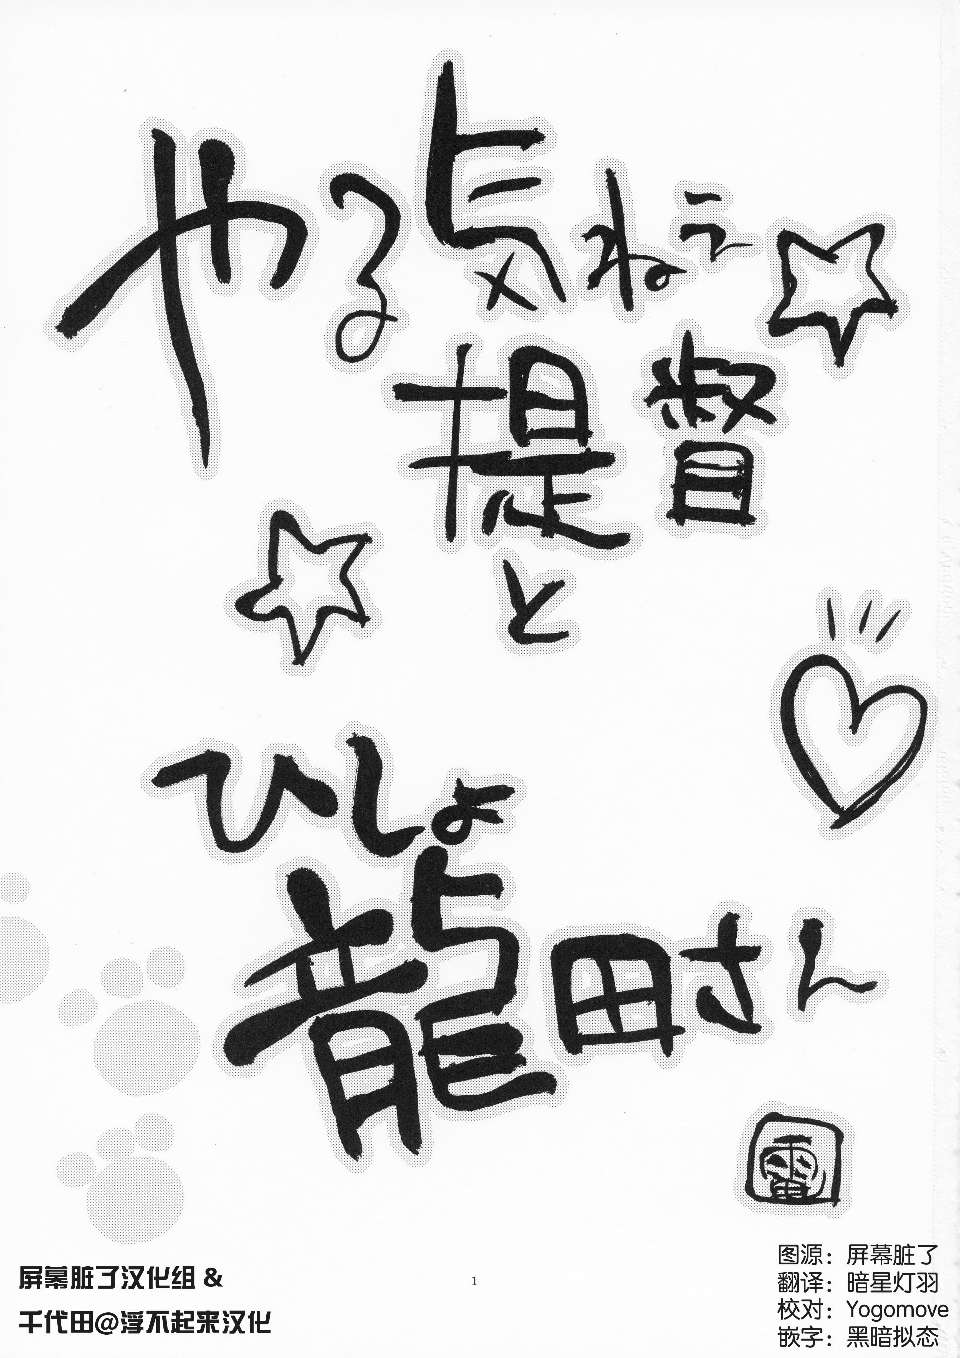 やる気ねェ☆
提督
と
ひしょ
龍田さん
雷
屏幕脏了汉化组 &
千代田@浮不起来汉化
1
图源：屏幕脏了
翻译：暗星灯羽
校对：Yogomove
嵌字：黑暗拟态